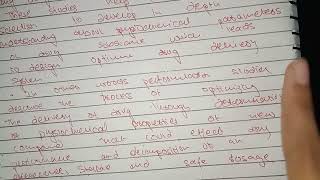 studies help
selection to develop in depth
understanding about physiochemical parameters
of a substance which leads
to design optimum drug delivery
system
- In other words preformulation studies
describe the process of optimizing
the delivery of drug through determination
of physiochemical properties of new
compound that could effect drug
performance and decomposition of an
stable and safe dosage